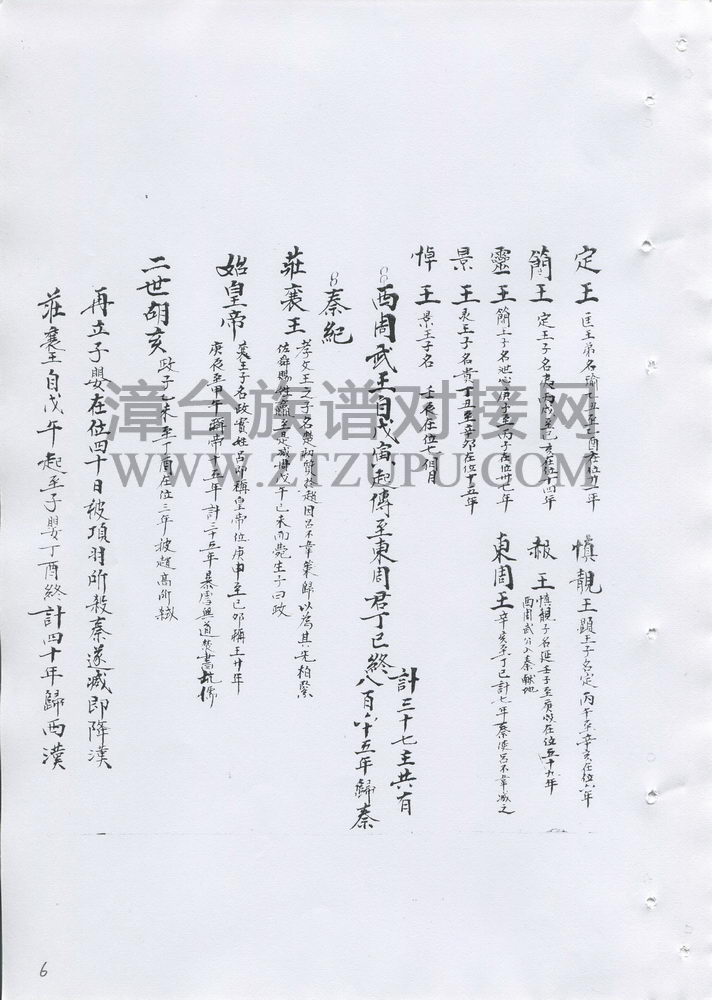 定王 匡王弟名瑜 乙卯至丁酉在位廿一年
慎靚王 顕王子名定丙午至辛亥在位六年
簡王 定王子名夷丙戌至己亥在位十四年
赧王 慎靚子名延壬子至庚戌在位五十九年
西周武公入秦献地
靈王 簡王子名泄心庚子至丙子在位卅七年
東周王 辛亥至丁巳計七年秦使呂不韋滅之
景王 灵王子名貴丁丑至辛卯在位十五年
悼王 景王子名 壬辰在位七個月
西周武王自戊寅起傳至東周君丁巳終
計三十七主共有
八百六十五年歸秦
秦紀
莊襄王 孝文王之子名楚初質於趙因呂不韋策歸以為其先柏繄
佐舜賜姓嬴至是咸卅戊午己未而薨生子曰政
始皇帝 襄王子名政實姓呂即稱皇帝位庚申至己卯稱王廿年
庚辰至甲午歸帝十五年計三十五年暴虐無道焚書坑儒
二世胡亥 政子乙未至丁酉在位三年被趙高所弒
再立子嬰在位四十日被項羽所殺秦遂滅即降漢
莊襄王自戊午起至子嬰丁酉終計四十年歸西漢
漳台族谱对接网
WWW.ZTZUPU.COM
6